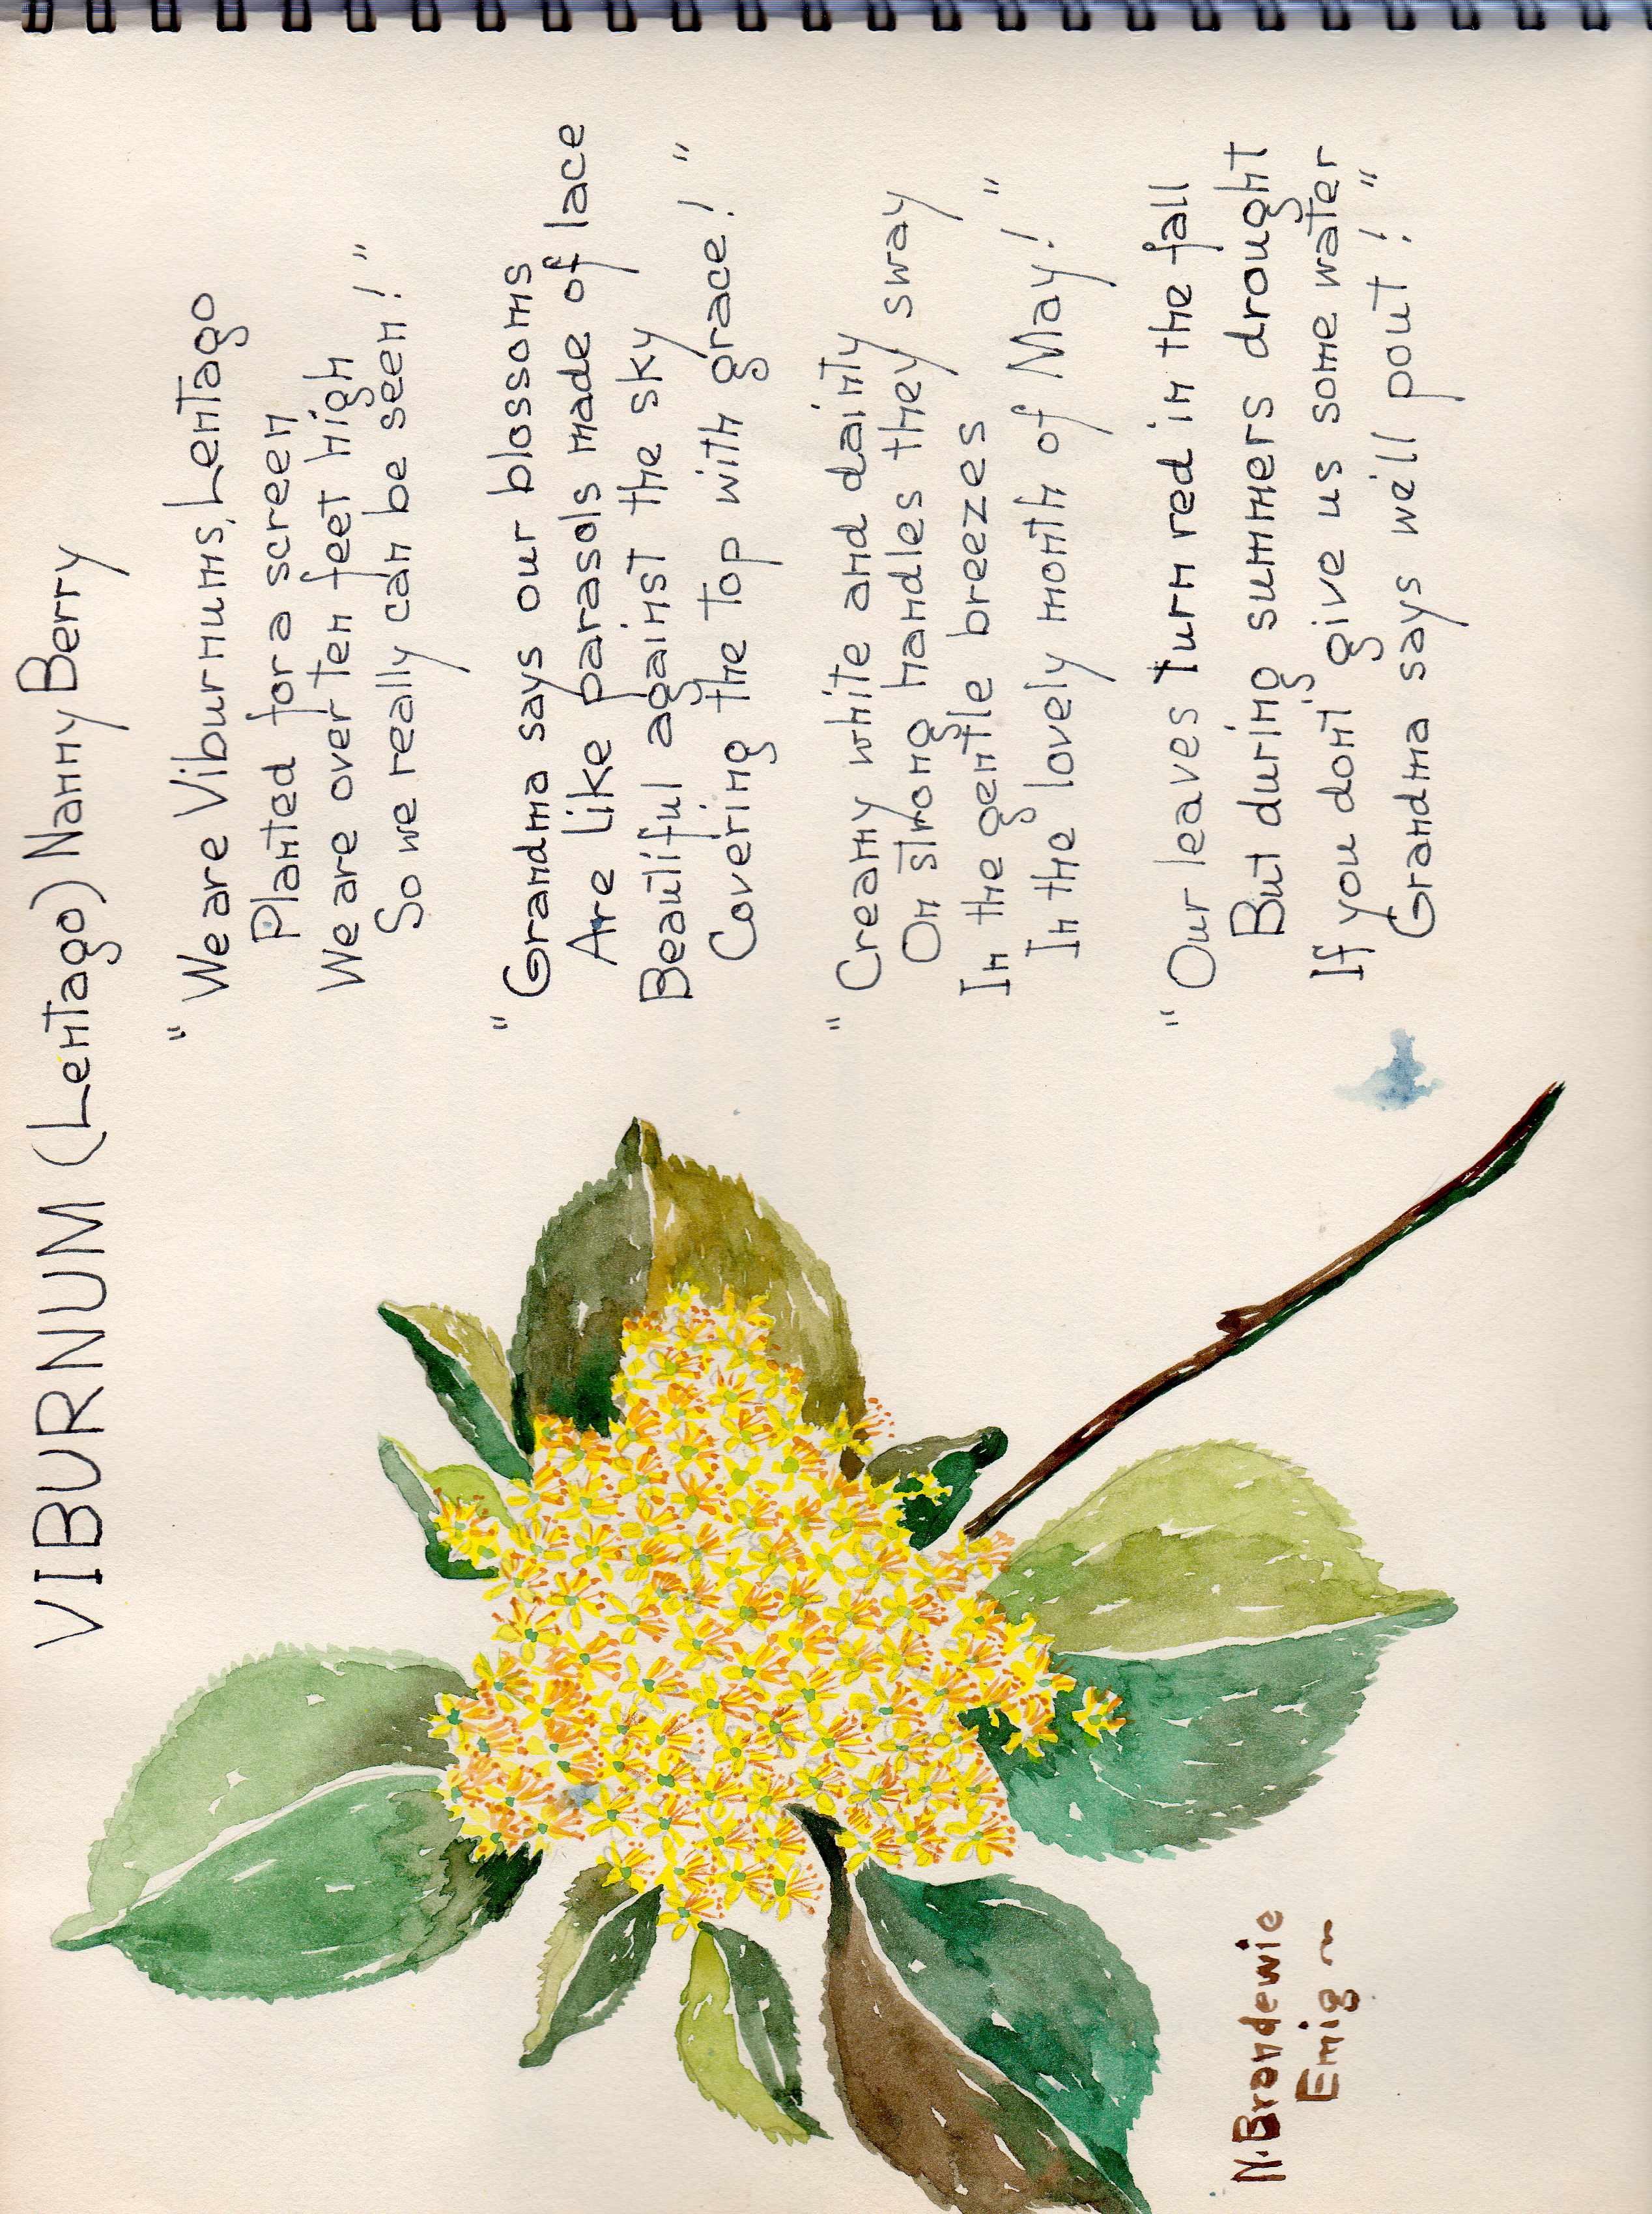 VIBURNUM (Lentago) Nanny Berry
"We are Viburnums, Lentago
Planted for a screen
We are over ten feet high
So we really can be seen!"
"Grandma says our blossoms
Are like parasols made of lace
Beautiful against the sky
Covering the top with grace!"
"Creamy white and dainty
On strong handles they sway
In the gentle breezes
In the lovely month of May!"
"Our leaves turn red in the fall
But during summers drought
If you don't give us some water
Grandma says we'll pout!"
N. Brandewie
Emig